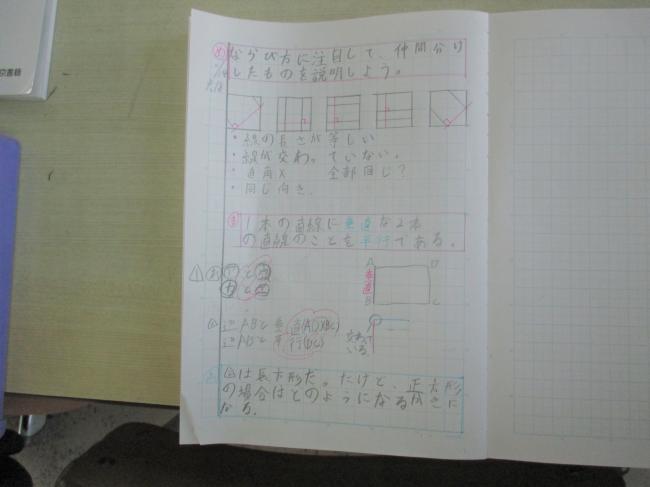 め ならび方に注目して、仲間分け
したものを説明しよう。
・線の長さが等しい
・線が交わっていない。
・直角× 全部同じ?
・同じ向き.
ま 1本の直線に垂直な2本
の直線のことを平行である。
A D
垂直
B C
辺ABと垂直(AD)(BC)
辺ABと平行(DC)
交わっている
は長方形だ。だけど、正方形
の場合はどのようになるか気に
なる.